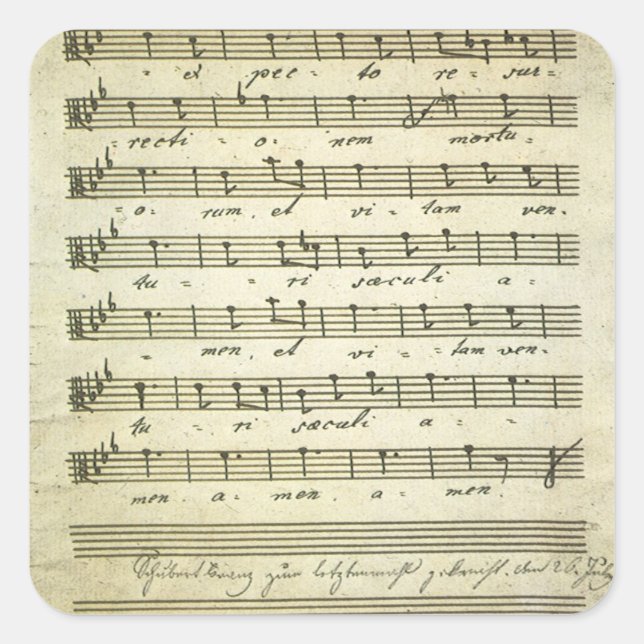 - ex pec - to re - sur-
- recti - o - nem mortu -
- o - rum, et vi - tam ven.
tu - - ri sæculi a -
- men, et vi - tam ven -
tu - - ri sæculi a -
men. a - men. a - men.
Schubert Franz zum letztenmahl gekräht. den 26. July